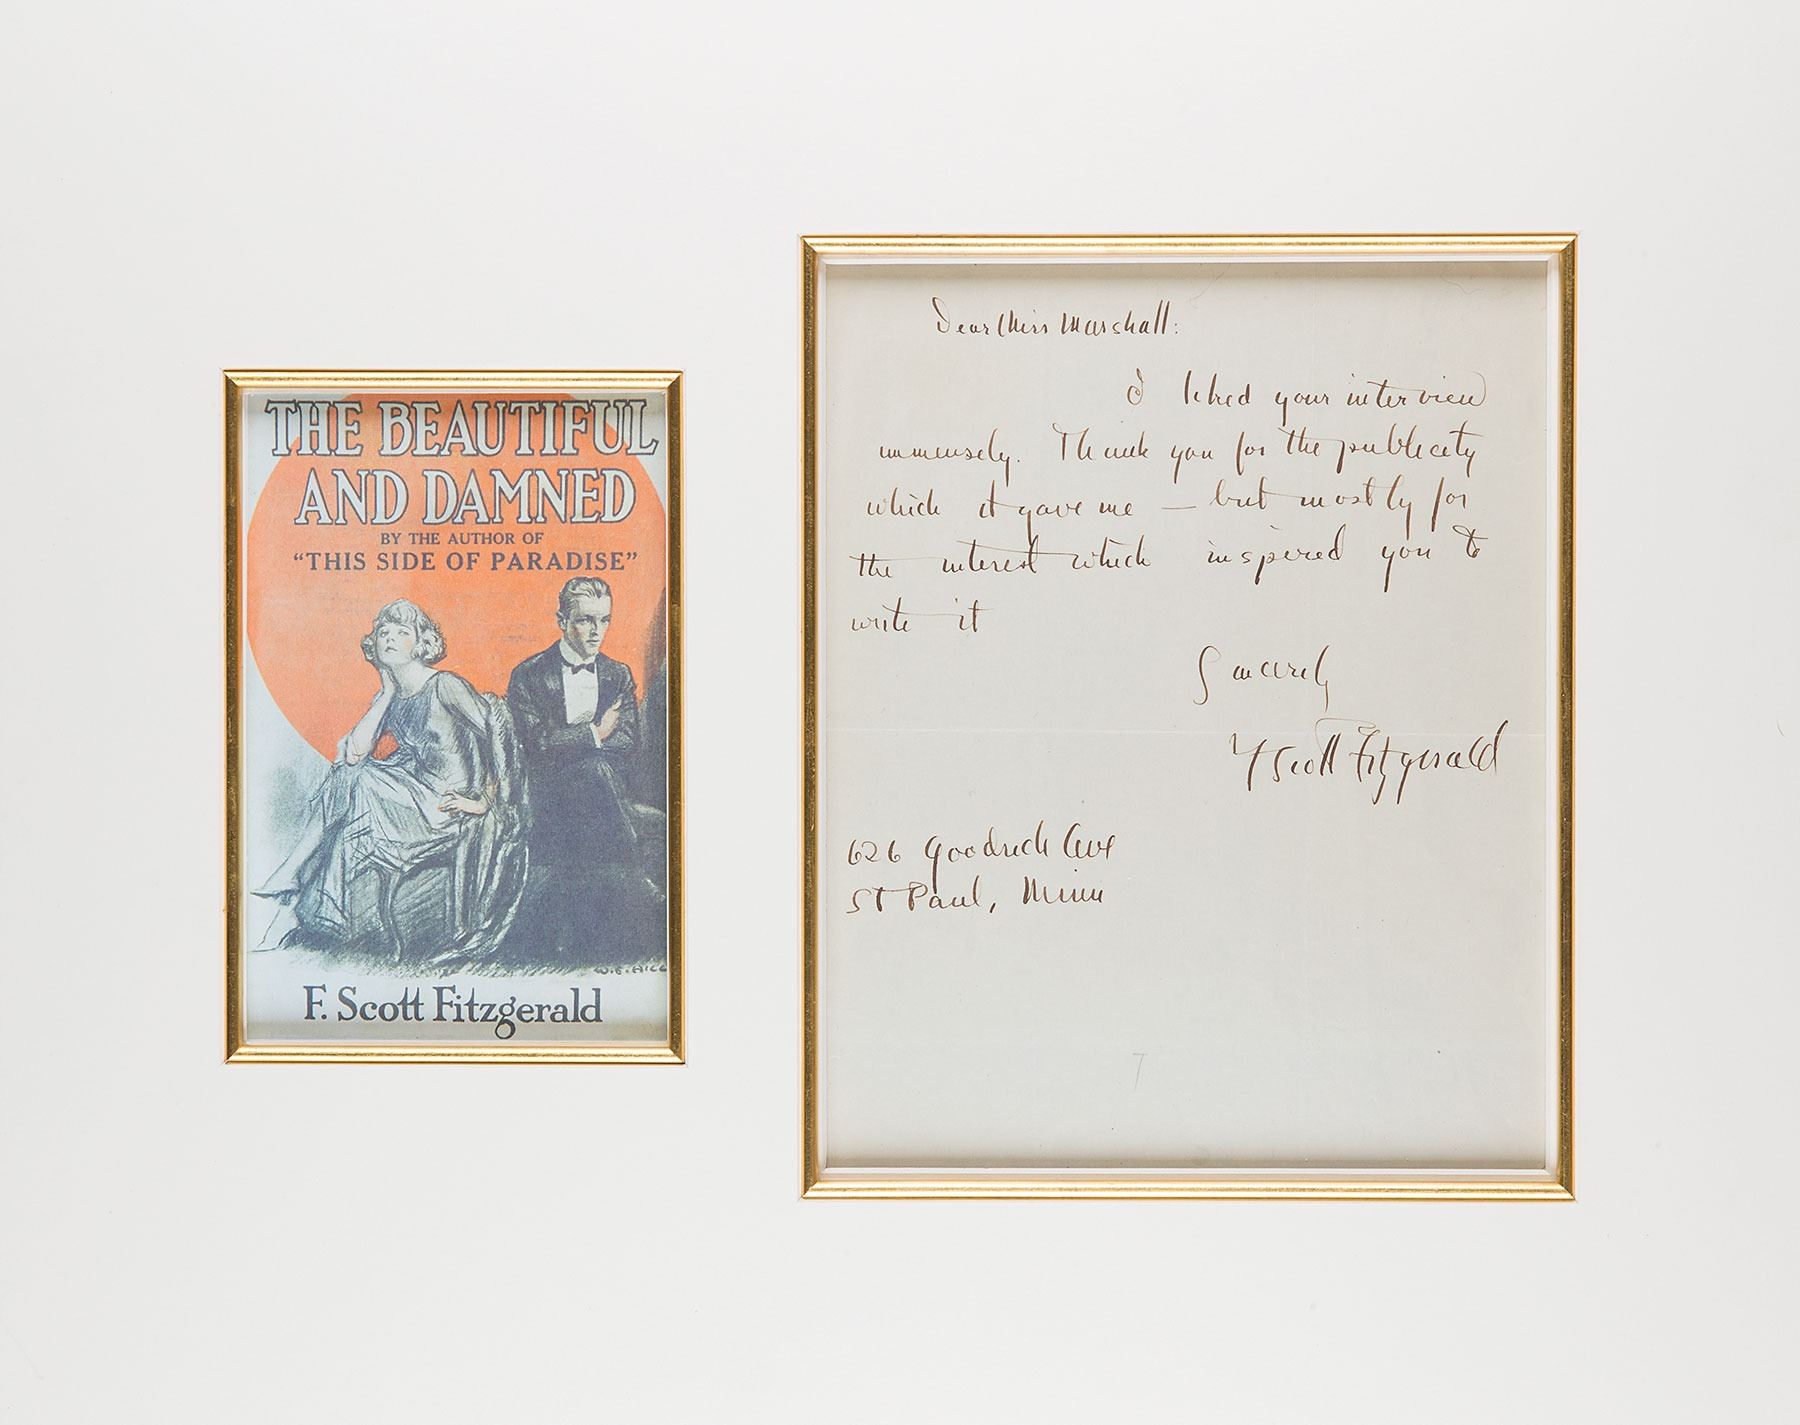 THE BEAUTIFUL
AND DAMNED
BY THE AUTHOR OF
"THIS SIDE OF PARADISE"
W.E. HILL
F. Scott Fitzgerald
Dear Miss Marshall:
I liked your interview
immensely. Thank you for the publicity
which it gave me — but mostly for
the interest which inspired you to
write it
Sincerely
F Scott Fitzgerald
626 Goodrich Ave
St Paul, Minn